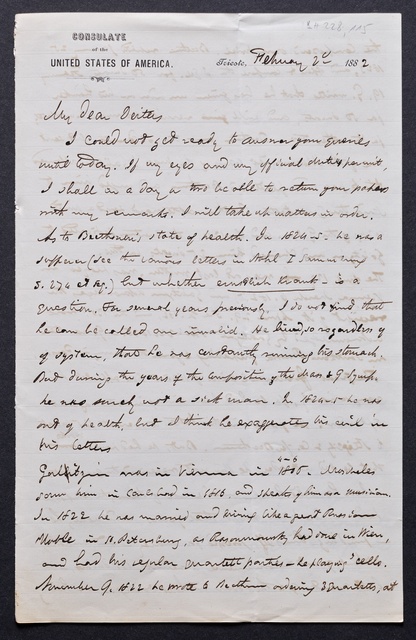 CONSULATE
of the
UNITED STATES OF AMERICA.
Trieste, February 2d 1882
My dear Deiters
I could not get ready to answer your queries
until today. If my eyes and my official duties permit,
I shall in a day or two be able to return your papers
with my remarks. I will take up matters in order.
As to Beethoven's state of health. In 1824-5 he was a
sufferer (see the various letters in Nohl I Sammlung
S. 274 et sq.) but whether ernstlich krank - is a
question. For several years previously, I do not find that
he can be called an invalid. He lived so regardless of
of system, that he was constantly ruining his stomach.
But during the years of the composition of the Mass & 9 Symph.
he was surely not a sick man. In 1824-5 he was
out of health, but I think he exaggerates his evil in
his letters
Galitzin was in Vienna in 4-6 Moscheles
saw him in Carlsbad in 1816, and speaks of him as a musician.
In 1822 he was married and living like a great Russian
Noble in St. Petersburg, as Rasoumowsky had done in Wien,
and had his regular quartett parties - he playing cello.
November 9. 1822 he wrote to Beeth ordering 3 Quartetts, at